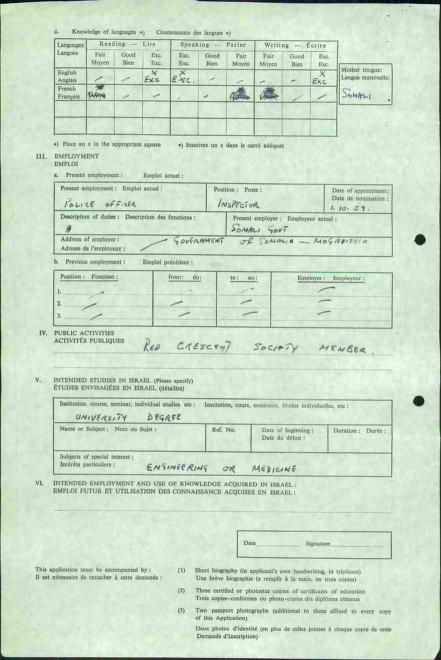 e. Knowledge of languages *) Connaissance des langues *)
Languages Langues
Reading — Lire
Speaking — Parler
Writing — Ecrire
Fair Moyen
Good Bien
Exc. Exc.
Exc. Exc.
Good Bien
Fair Moyen
Fair Moyen
Good Bien
Exc. Exc.
Mother tongue:
Langue maternelle:
SOMALI
English Anglais
X Exc
X Exc.
X Exc
French Français
*) Place an x in the appropriate square *) Inscrivez un x dans le carré adéquat
III. EMPLOYMENT
EMPLOI
a. Present employment: Emploi actuel:
Present employment: Emploi actuel:
POLICE OFFICER
Position: Poste:
INSPECTOR
Date of appointment:
Date de nomination:
1.10.59.
Description of duties: Description des fonctions:
Present employer: Employeur actuel:
SOMALI GOVT
Address of employer:
Adresse de l'employeur:
GOVERNMENT OF SOMALIA — MOGADISCIO
b. Previous employment: Emploi précédent:
Position: Fonction:
from: du:
to: au:
Employer: Employeur:
1.
2.
3.
IV. PUBLIC ACTIVITIES
ACTIVITÉS PUBLIQUES
RED CRESCENT SOCIETY MEMBER.
V. INTENDED STUDIES IN ISRAEL (Please specify)
ÉTUDES ENVISAGÉES EN ISRAEL (détaillez)
Institution, course, seminar, individual studies etc: Institution, cours, seminaire, études individuelles, etc:
UNIVERSITY DEGREE
Name or Subject: Nom ou Sujet:
Ref. No.
Date of beginning:
Date du début:
Duration: Durée:
Subjects of special interest:
Intérêts particuliers:
ENGINEERING OR MEDICINE
VI. INTENDED EMPLOYMENT AND USE OF KNOWLEDGE ACQUIRED IN ISRAEL:
EMPLOI FUTUR ET UTILISATION DES CONNAISSANCE ACQUISES EN ISRAEL:
Date Signature
This application must be accompanied by:
Il est nécessaire de rattacher à cette demande:
(1) Short biography (in applicant's own handwriting, in triplicate)
Une brève biographie (a remplir à la main, en trois copies)
(2) Three certified or photostat copies of certificates of education
Trois copies-conformes ou photo-copies des diplômes obtenus
(3) Two passport photographs (additional to those affixed to every copy
of this Application)
Deux photos d'identité (en plus de celles jointes à chaque copie de cette
Demande d'Inscription)